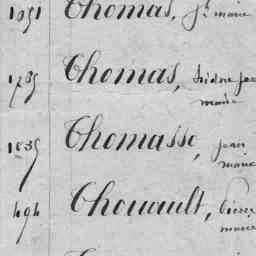 1051 Thomas, Jn marie
1785 Thomas, Isidore jean
marie
1835 Thomasse, jean
marie
494 Thouault, Pierre
marie